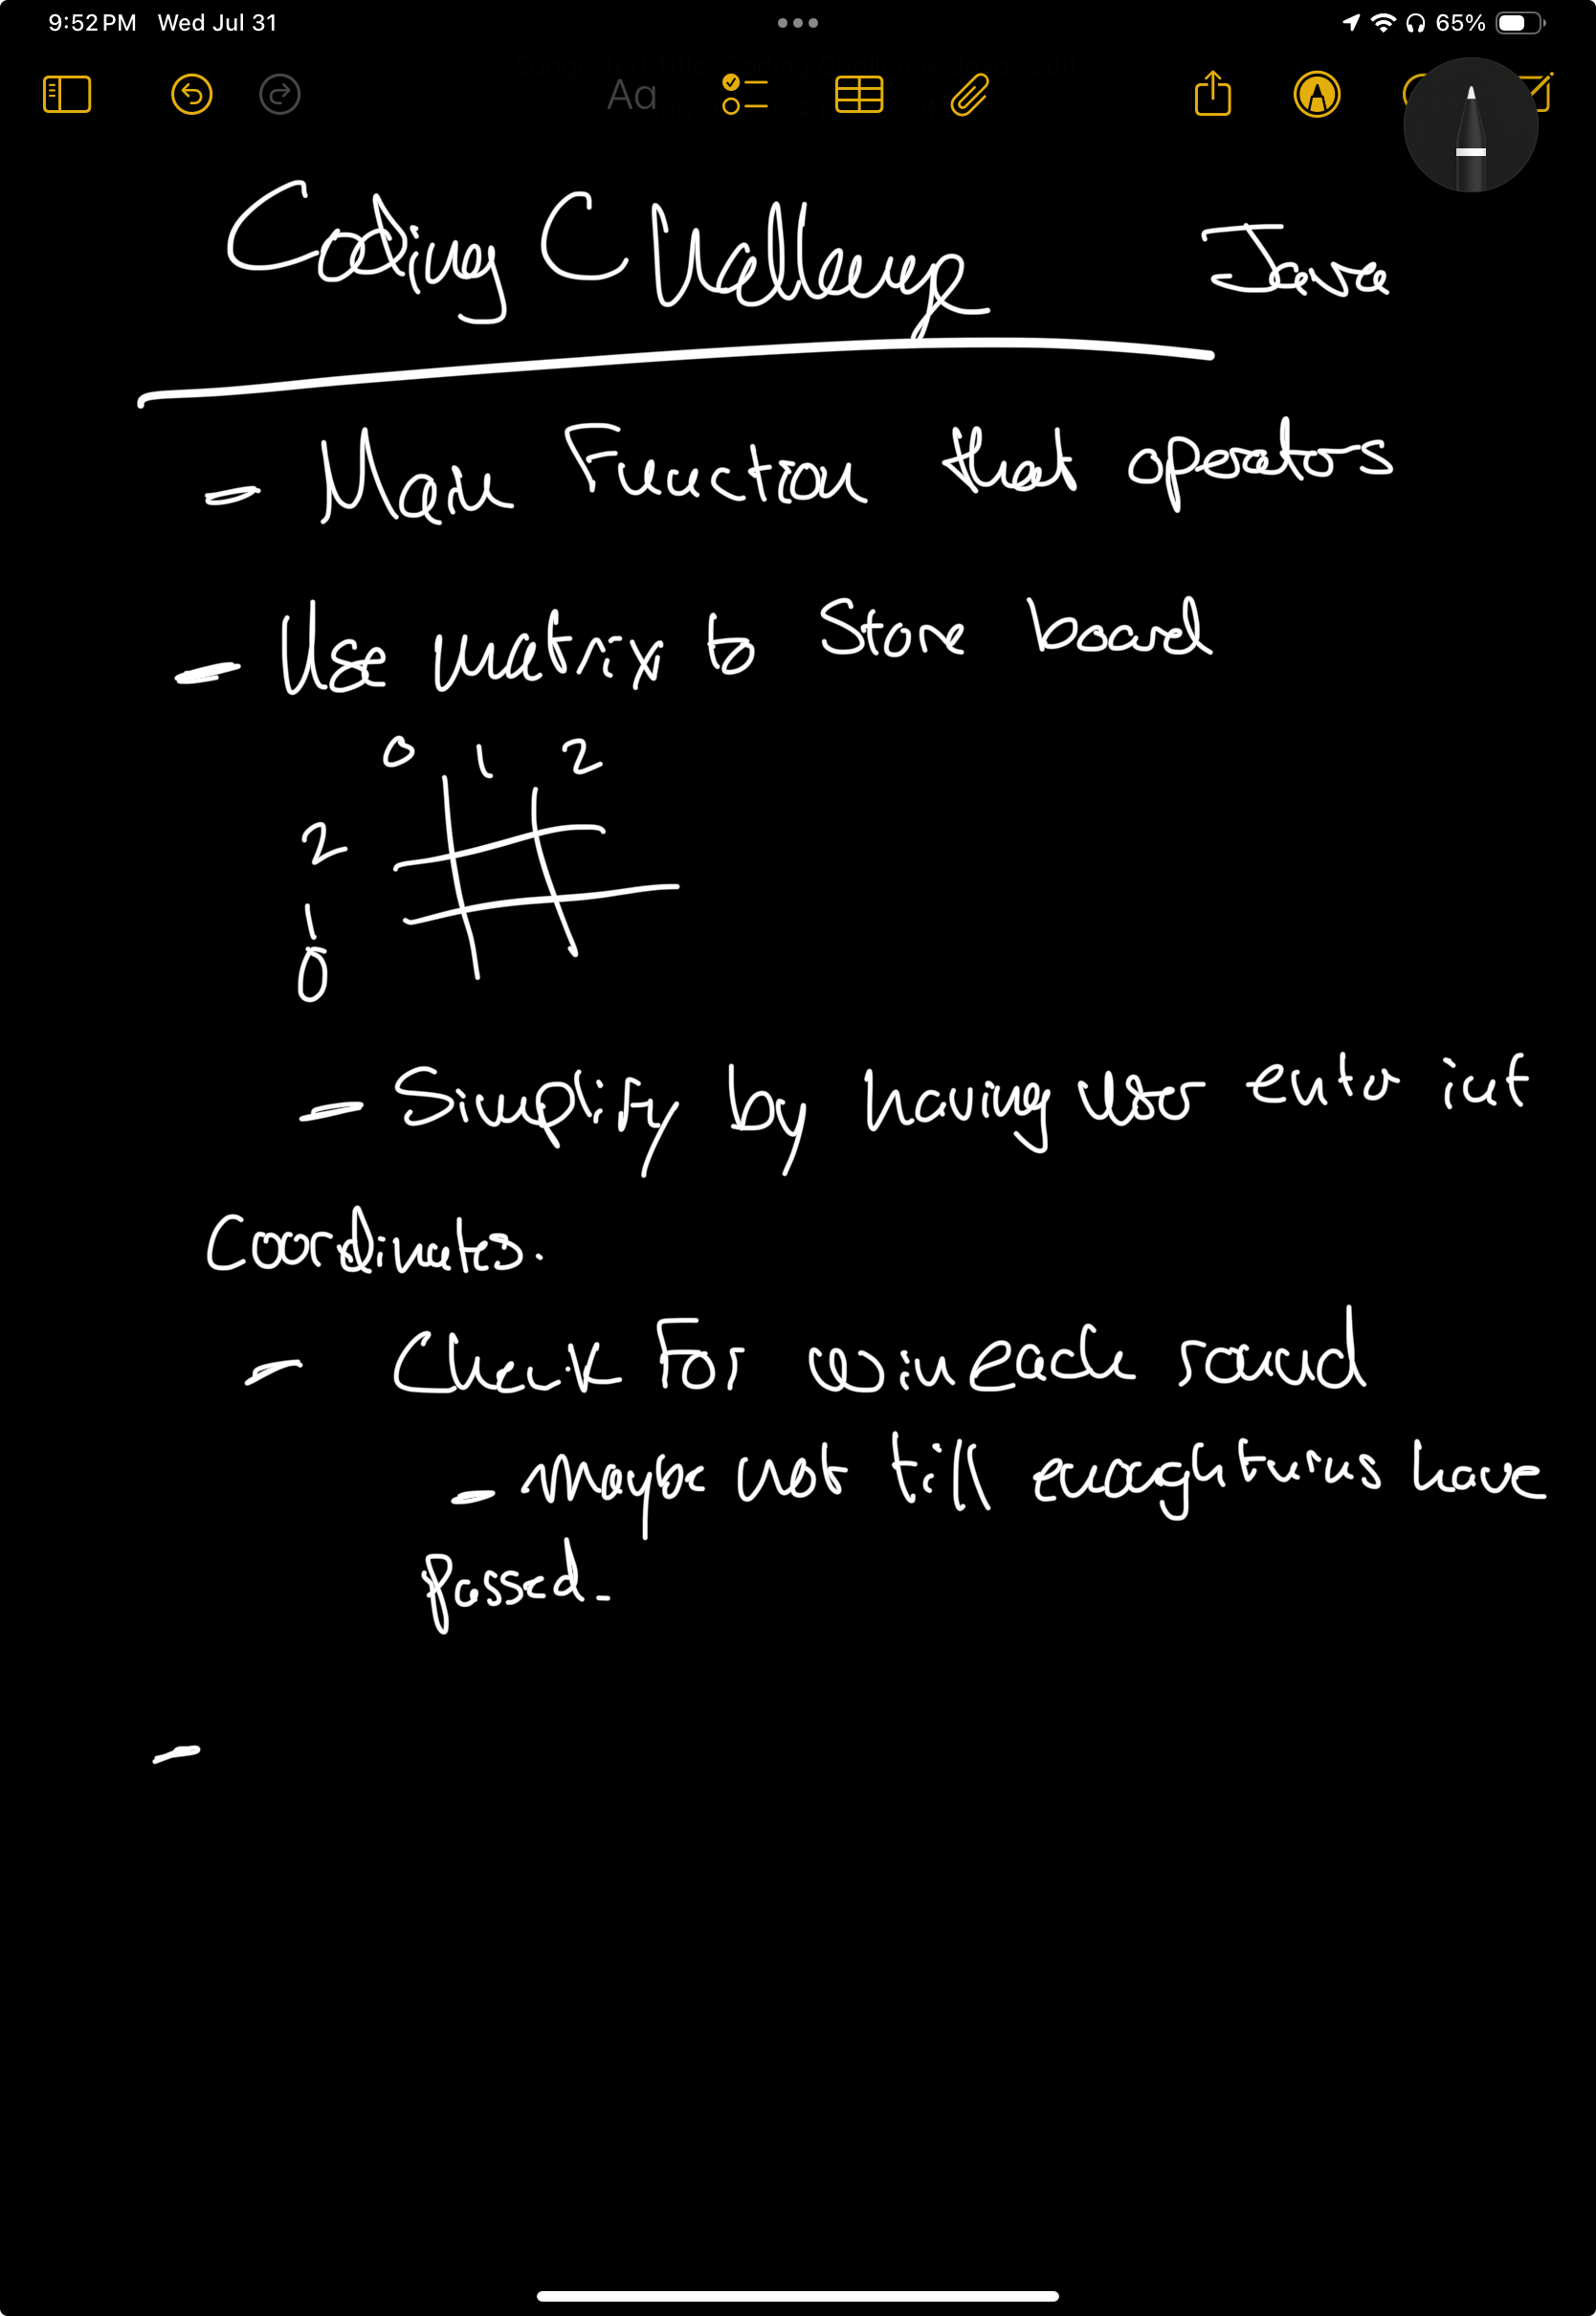 9:52 PM Wed Jul 31 65%
Aa
Coding Challenge Java
- Main Function that operators
- Use matrix to Store board
0 1 2
2
1
0
- Simplify by having user enter int
Coordinates.
- Check For win each round
- Maybe not till enough turns have
passed.
-